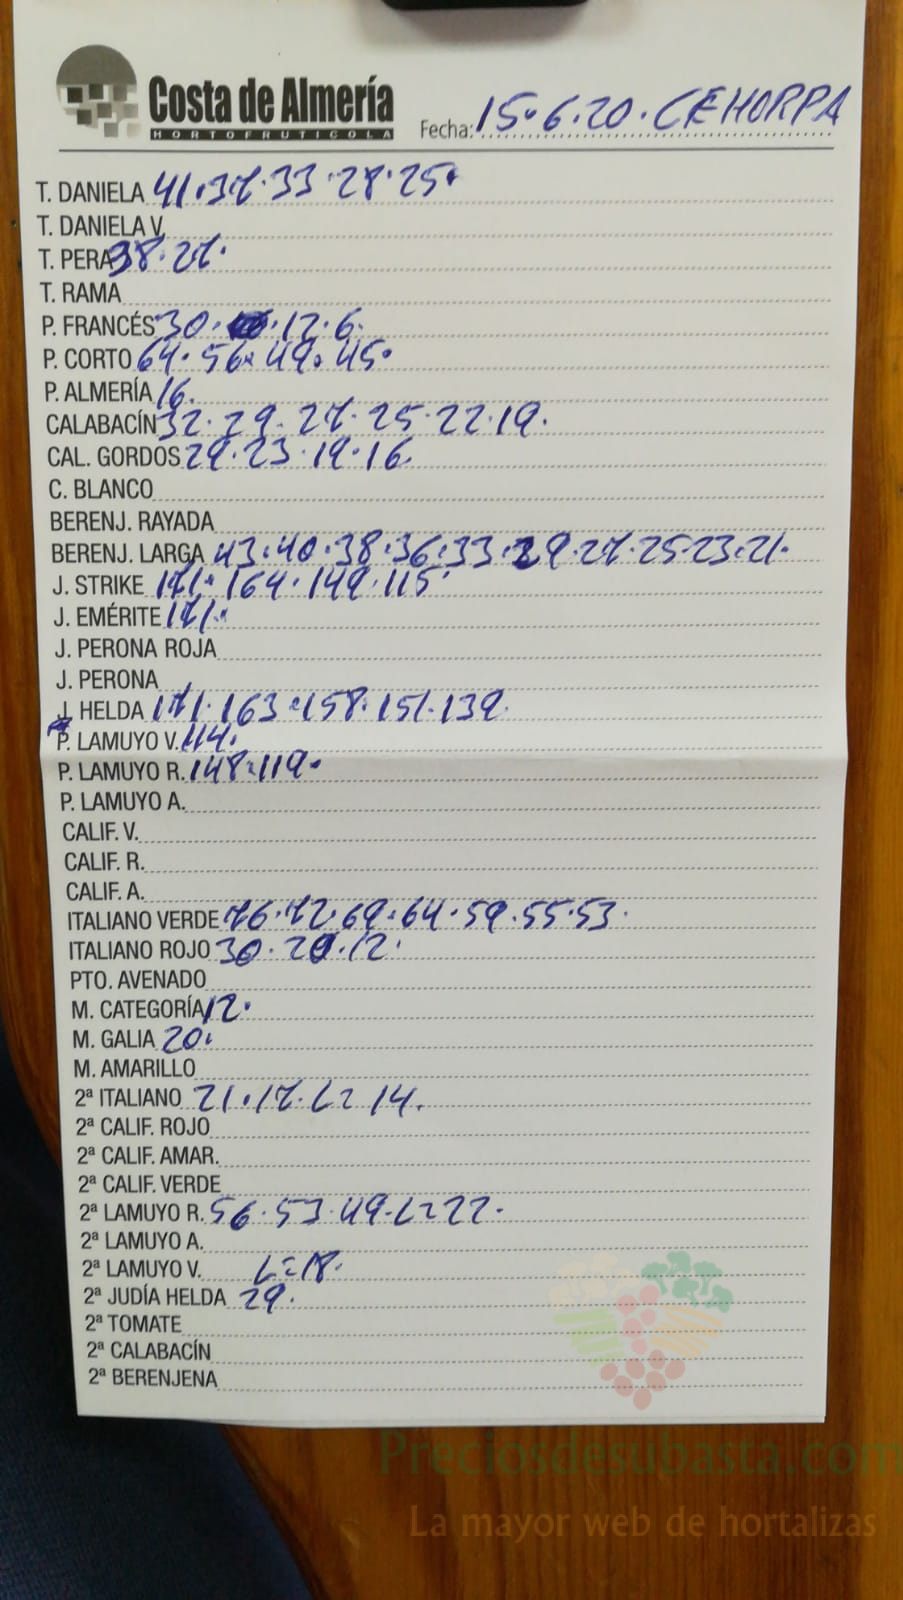 Costa de Almería
HORTOFRUTICOLA
Fecha: 15.6.20. CEHORPA
T. DANIELA 41.37.33.28.25.
T. DANIELA V.
T. PERA 38.27.
T. RAMA
P. FRANCÉS 30. .12.6.
P. CORTO 64.56.49.45.
P. ALMERÍA 16.
CALABACÍN 32.29.27.25.22.19.
CAL. GORDOS 29.23.19.16
C. BLANCO
BERENJ. RAYADA
BERENJ. LARGA 43.40.38.36.33.29.27.25.23.21.
J. STRIKE 171.164.149.115.
J. EMÉRITE 171.
J. PERONA ROJA
J. PERONA
J. HELDA 171.163.158.151.139.
P. LAMUYO V. 114.
P. LAMUYO R. 148.119.
P. LAMUYO A.
CALIF. V.
CALIF. R.
CALIF. A.
ITALIANO VERDE 76.72.69.64.59.55.53.
ITALIANO ROJO 30.20.12.
PTO. AVENADO
M. CATEGORÍA 12.
M. GALIA 20.
M. AMARILLO
2ª ITALIANO 21.17.L=14.
2ª CALIF. ROJO
2ª CALIF. AMAR.
2ª CALIF. VERDE
2ª LAMUYO R. 56.53.49.L=22.
2ª LAMUYO A.
2ª LAMUYO V. L=18.
2ª JUDÍA HELDA 29.
2ª TOMATE
2ª CALABACÍN
2ª BERENJENA
Preciosdesubasta.com
La mayor web de hortalizas